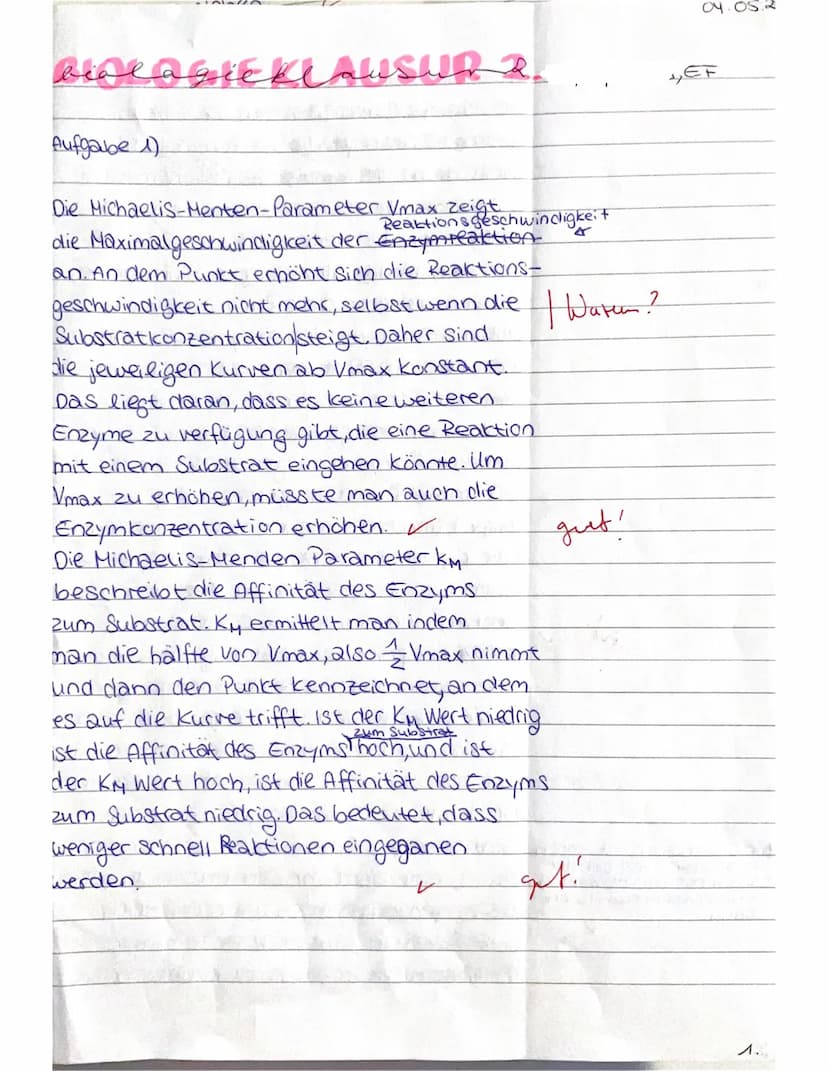 04.05.2
BIOLOGIEKLAUSUR 2.
, EF
Aufgabe 1)
Die Michaelis-Menten-Parameter Vmax zeigt
Reaktionsgeschwindigkeit
die Maximalgeschwindigkeit der Enzymreaktion
an. An dem Punkt erhöht sich die Reaktions-
geschwindigkeit nicht mehr, selbst wenn die
| Warum?
Substratkonzentration steigt. Daher sind
die jeweiligen Kurven ab Vmax konstant.
Das liegt daran, dass es keine weiteren
Enzyme zu verfügung gibt, die eine Reaktion
mit einem Substrat eingehen könnte. Um
Vmax zu erhöhen, müsste man auch die
Enzymkonzentration erhöhen. ✓ gut!
Die Michaelis-Menden Parameter KM
beschreibt die Affinität des Enzyms
zum Substrat. KM ermittelt man indem
man die hälfte von Vmax, also 1/2 Vmax nimmt
und dann den Punkt kennzeichnet, an dem
es auf die Kurve trifft. Ist der KM Wert niedrig
zum Substrat
ist die Affinität des Enzyms hoch, und ist
der KM Wert hoch, ist die Affinität des Enzyms
zum Substrat niedrig. Das bedeutet, dass
weniger schnell Reaktionen eingeganen
werden. ✓ gut!
1.